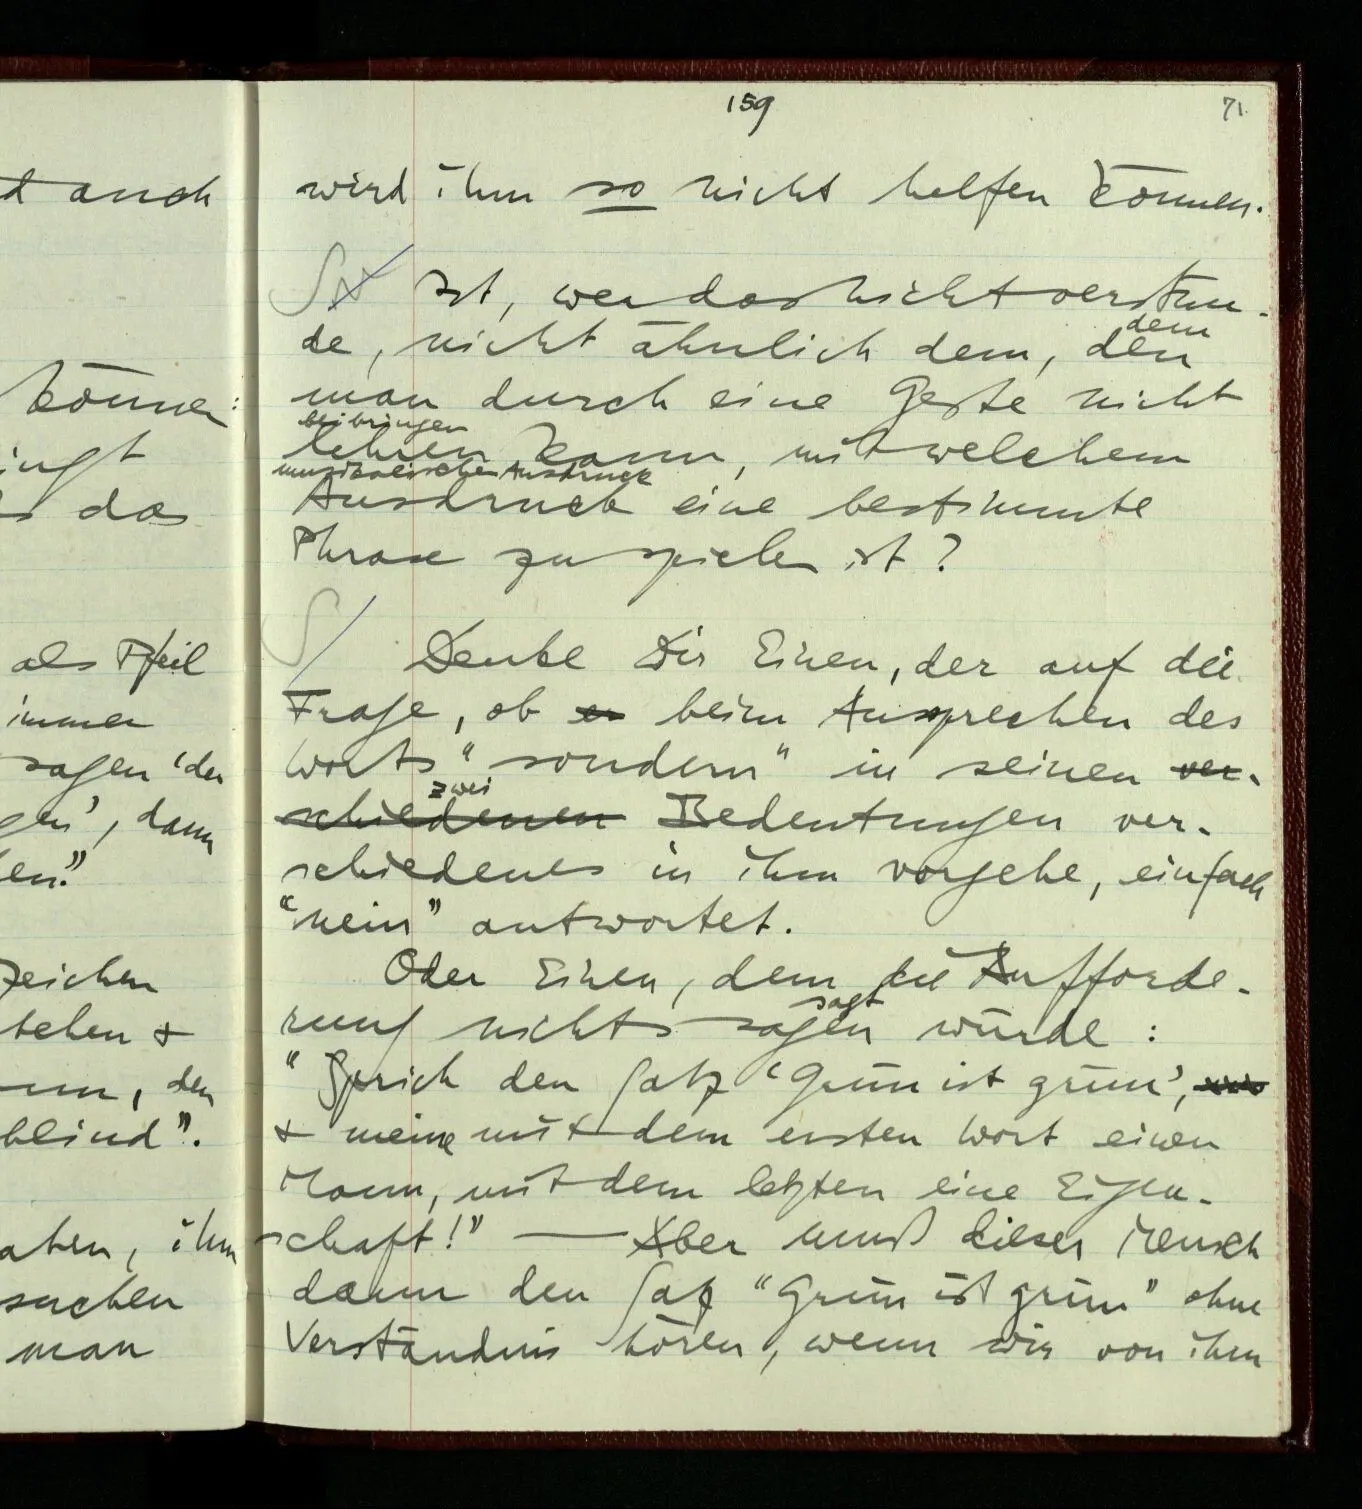 159
71
d auch
können:
ingt
s das
als Pfeil
immer
sagen 'der
gen', dann
en."
Zeichen
stehen &
, den
blind".
aten, ihm
suchen
man
wird ihm so nicht helfen können.
Ist, wer das nicht verstün-
dem
de, nicht ähnlich dem, den
man durch eine Geste nicht
beibringen
lehren kann, mit welchem
musikalischen Ausdruck
Ausdruck eine bestimmte
Phrase zu spielen ist?
Denke Dir Einen, der auf die
Frage, ob er beim Aussprechen des
Worts "sondern" in seinen ver-
zwei
schiedenen Bedeutungen ver-
schiedenes in ihm vorgehe, einfach
"nein" antwortet.
Oder Einen, dem die Aufforde-
sagt
rung nichts sagen würde :
"Sprich den Satz 'Grün ist grün',
& meine mit dem ersten Wort einen
Mann, mit dem letzten eine Eigen-
schaft!" — Aber muß dieser Mensch
dann den Satz "Grün ist grün" ohne
Verständnis hören, wenn wir von ihm